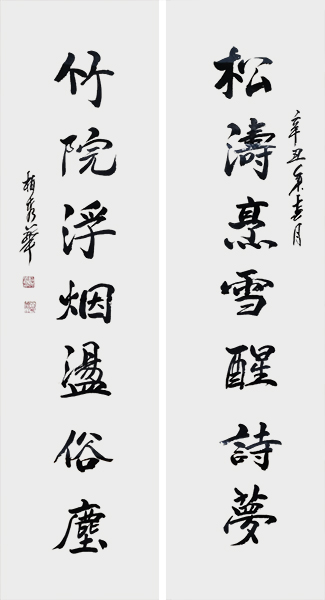 松濤烹雪醒詩夢
辛丑年月
竹院浮烟盪俗塵
秀華